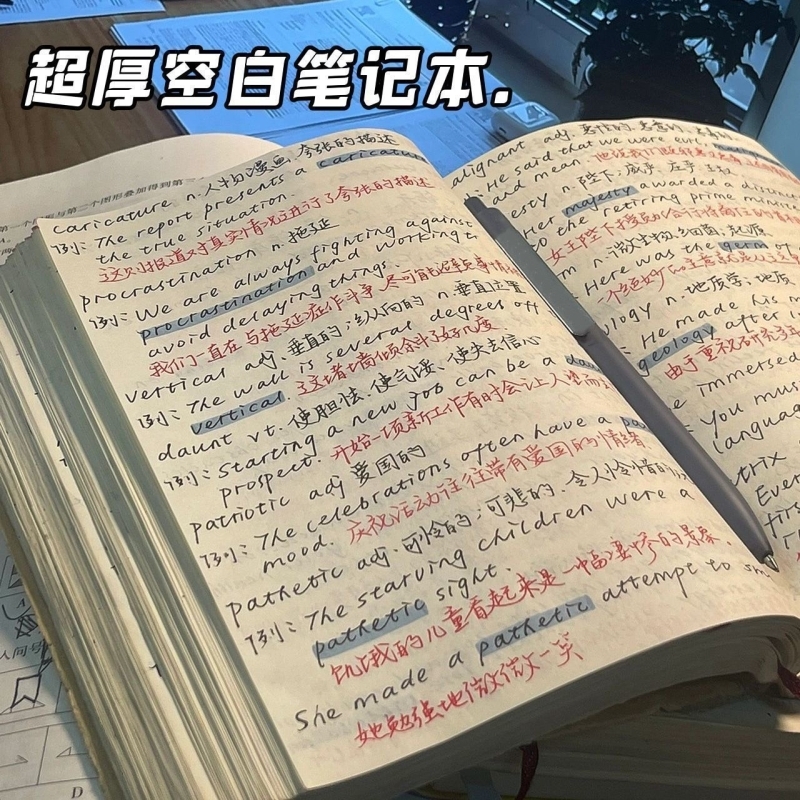 超厚空白笔记本.
caricature n.人物漫画,夸张的描述
例: The report presents a caricature
the true situation.
这则报道对真实情况进行了夸张的描述
procrastination n. 拖延
例: We are always fighting against
procrastination and working to
avoid delaying things.
我们一直在与拖延症作斗争
vertical adj. 垂直的;纵向的 n.垂直位置
例: The wall is several degrees off
vertical. 这堵墙倾斜了好几度
daunt vt. 使胆怯,使气馁,使失去信心
例: Starting a new job can be a
prospect. 开始一项新工作有时会让人望而
patriotic adj 爱国的
例: The celebrations often have a
mood. 庆祝活动往往带有爱国的情绪
pathetic adj. 可怜的;可悲的,令人怜惜的
例: The starving children were a
pathetic sight.
饥饿的儿童看起来是一幅凄惨的景象.
She made a pathetic attempt to
她勉强地微微一笑
alignant adj.
: He said that we were evil
and mean.
esty n.陛下,威严,庄亨
Her majesty awarded a
to the retiring prime
m n.微生物,细菌;起源
Here was the germ of
ology n.地质学;地质
He made his
geology after
e immersed
You must
language
trix
Ever
first
第一个图形与第二个图形叠加得到第三
D